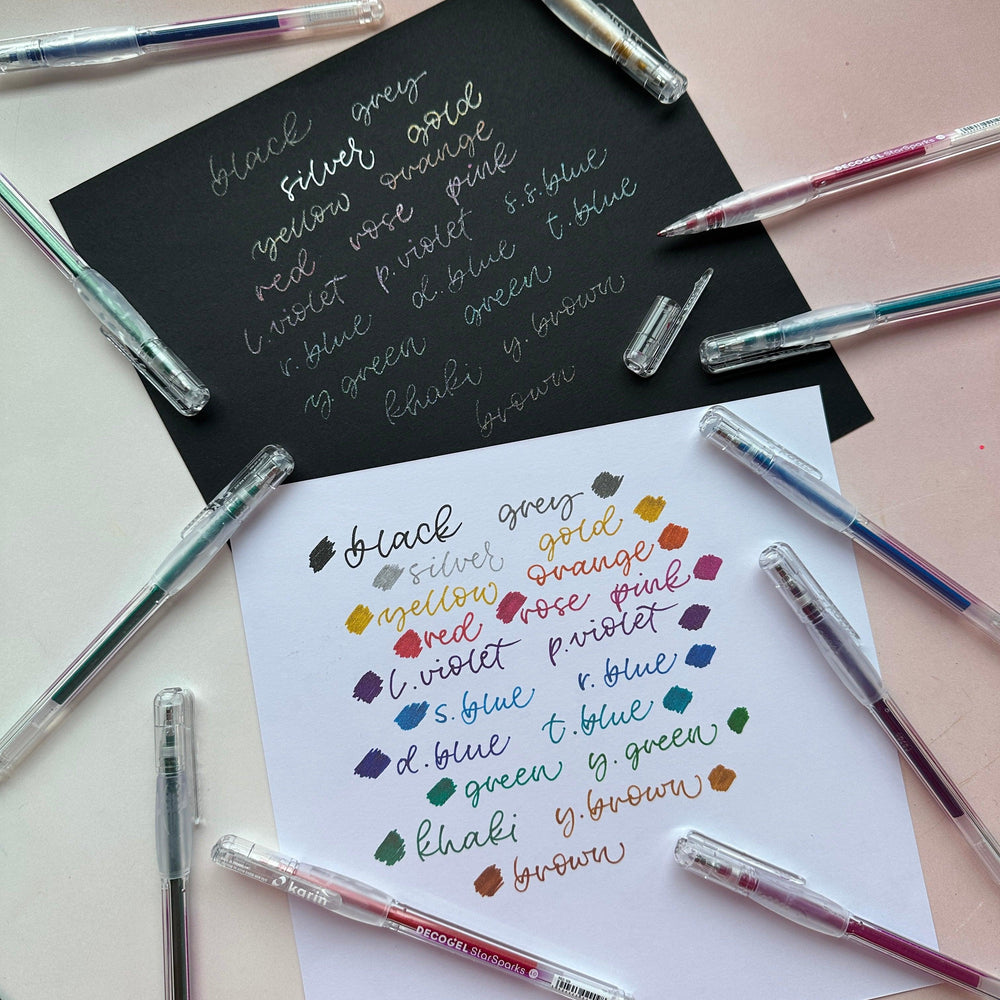 black grey
silver gold
yellow orange
red rose pink
l.violet p.violet s.s.blue
r.blue d.blue t.blue
y green green
khaki y.brown
brown
DECOGEL StarSparks
black grey
silver gold
yellow orange
red rose pink
l.violet p.violet
s.blue r.blue
d.blue t.blue
green y.green
khaki y.brown
brown
karin
DECOGEL StarSparks 1.0